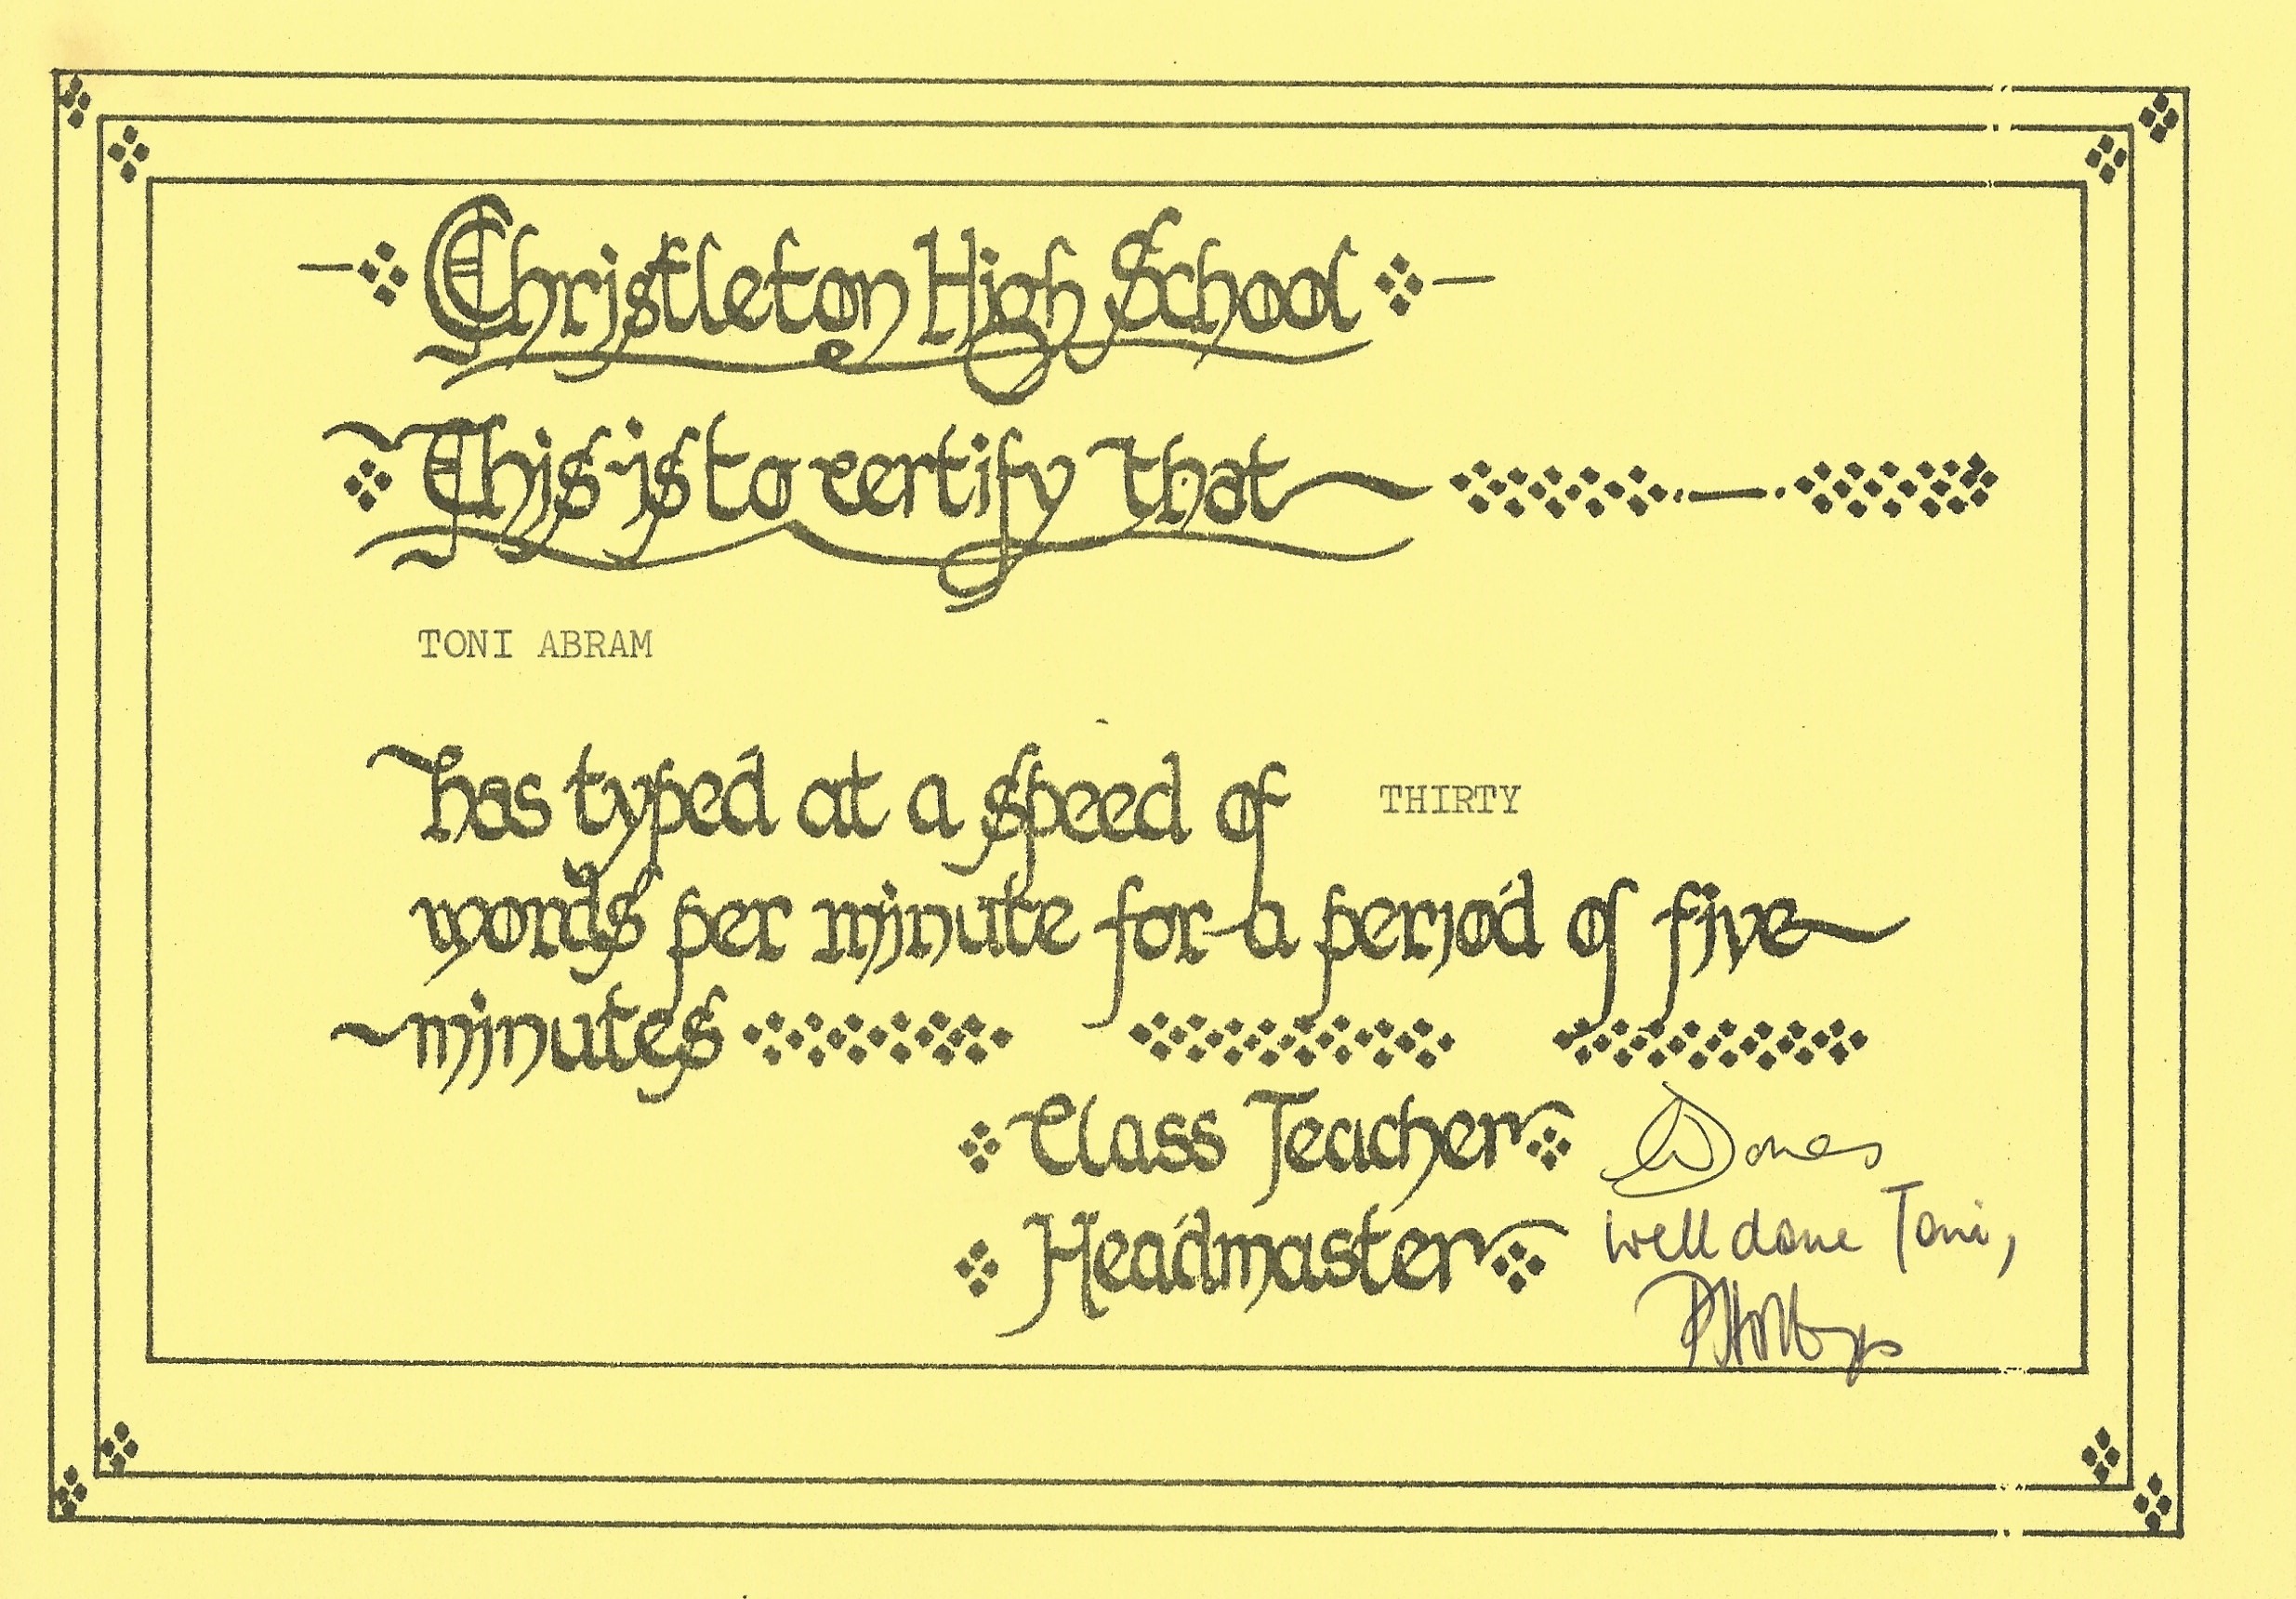 Christleton High School
This is to certify that
TONI ABRAM
has typed at a speed of THIRTY
words per minute for a period of five
minutes
Class Teacher
Headmaster well done Toni,